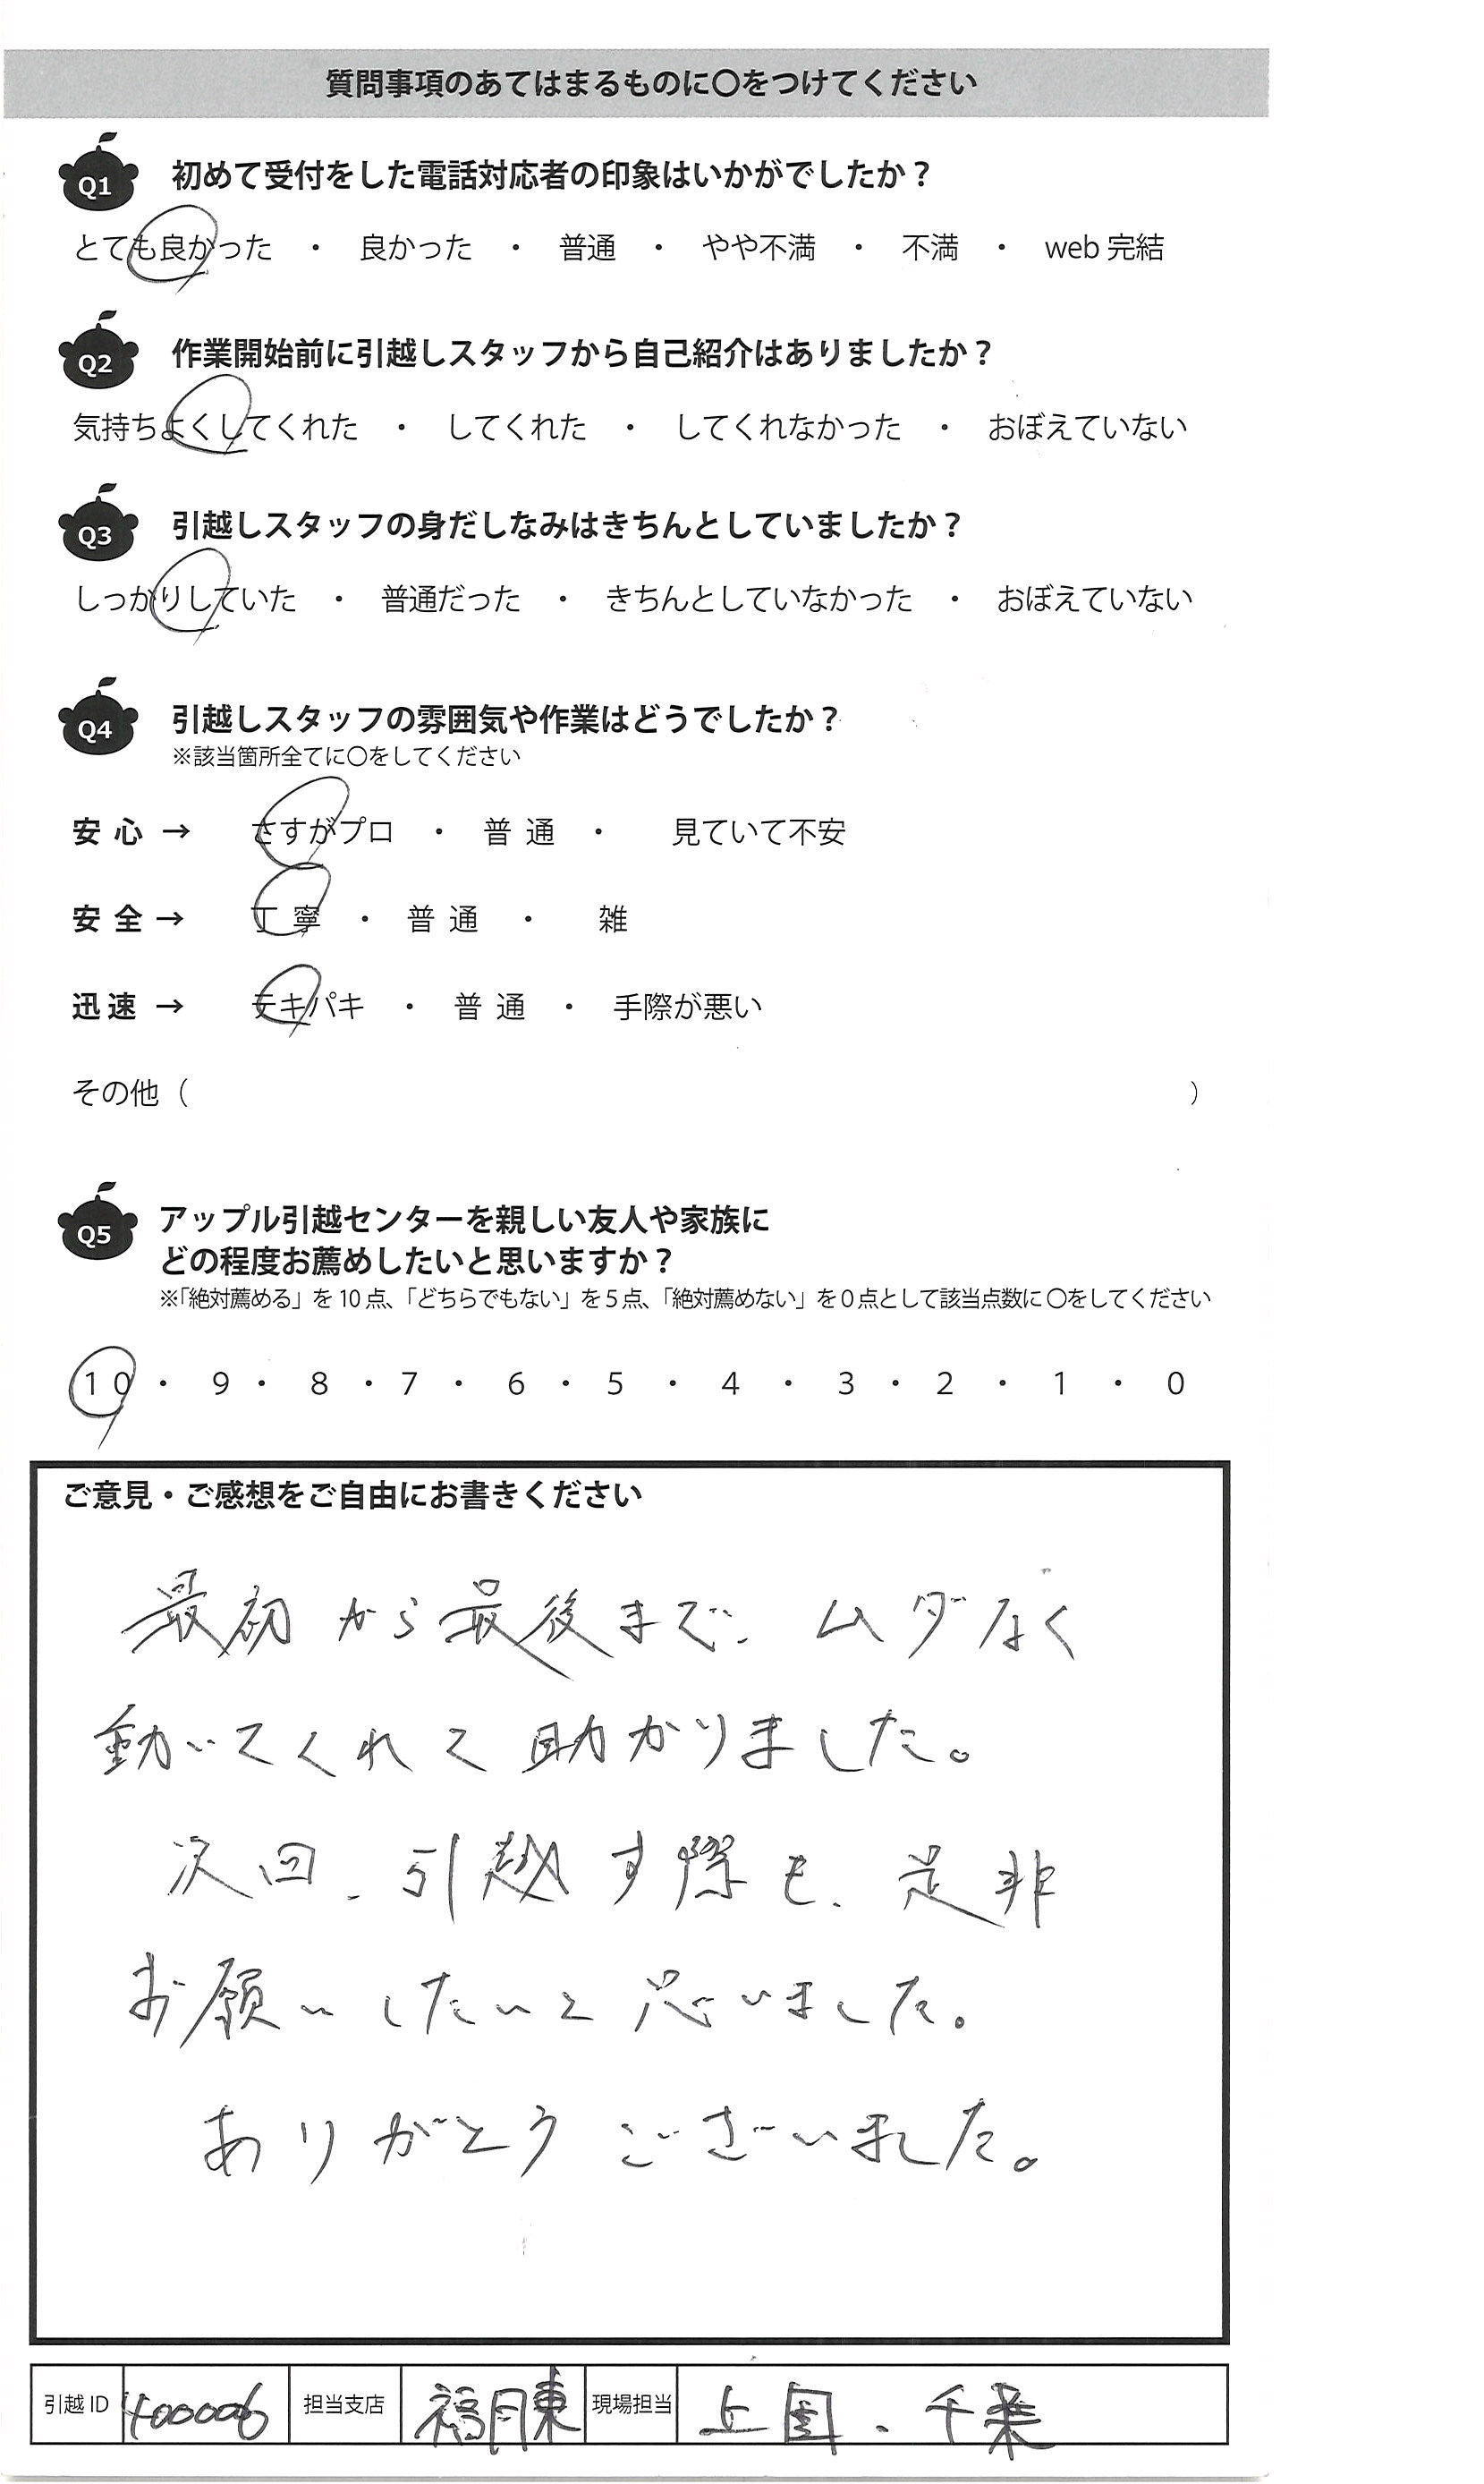 質問事項のあてはまるものに〇をつけてください
Q1 初めて受付をした電話対応者の印象はいかがでしたか？
とても良かった ・ 良かった ・ 普通 ・ やや不満 ・ 不満 ・ web 完結
Q2 作業開始前に引越しスタッフから自己紹介はありましたか？
気持ちよくしてくれた ・ してくれた ・ してくれなかった ・ おぼえていない
Q3 引越しスタッフの身だしなみはきちんとしていましたか？
しっかりしていた ・ 普通だった ・ きちんとしていなかった ・ おぼえていない
Q4 引越しスタッフの雰囲気や作業はどうでしたか？
※該当箇所全てに〇をしてください
安心 → さすがプロ ・ 普通 ・ 見ていて不安
安全 → 丁寧 ・ 普通 ・ 雑
迅速 → テキパキ ・ 普通 ・ 手際が悪い
その他（ ）
Q5 アップル引越センターを親しい友人や家族に
どの程度お薦めしたいと思いますか？
※「絶対薦める」を 10 点、「どちらでもない」を 5 点、「絶対薦めない」を 0 点として該当点数に 〇をしてください
10 ・ 9 ・ 8 ・ 7 ・ 6 ・ 5 ・ 4 ・ 3 ・ 2 ・ 1 ・ 0
ご意見・ご感想をご自由にお書きください
最初から最後まで、ムダなく
動いてくれて助かりました。
次回、引越す際も、是非
お願いしたいと思いました。
ありがとうございました。
引越 ID 400006 担当支店 福岡東 現場担当 上園、千葉